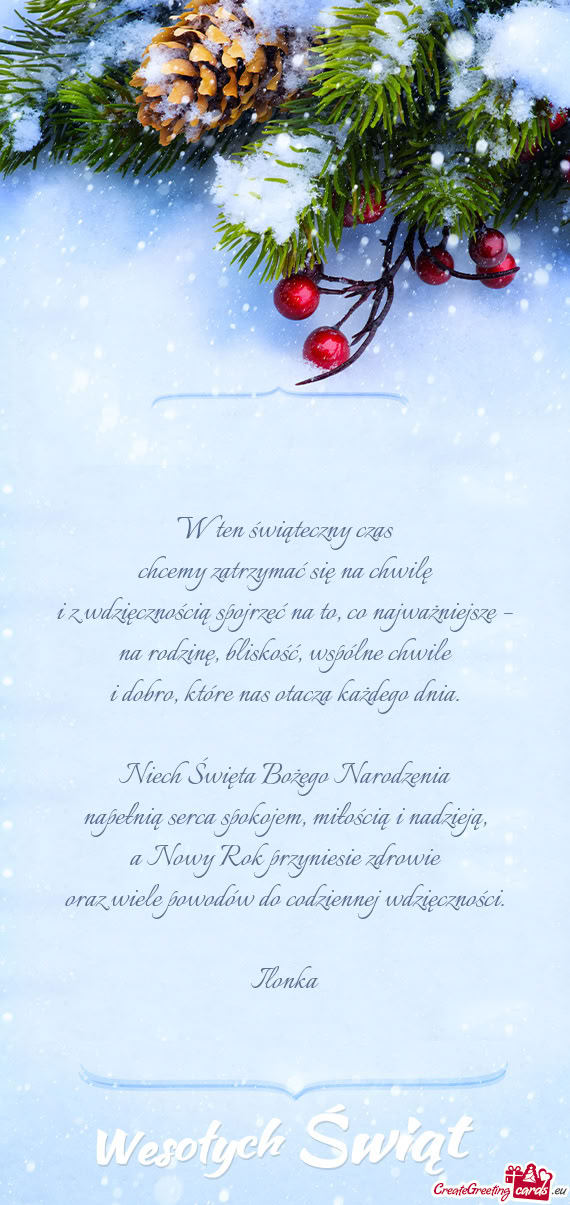 W ten świąteczny czas
chcemy zatrzymać się na chwilę
i z wdzięcznością spojrzeć na to, co najważniejsze –
na rodzinę, bliskość, wspólne chwile
i dobro, które nas otacza każdego dnia.
Niech Święta Bożego Narodzenia
napełnią serca spokojem, miłością i nadzieją,
a Nowy Rok przyniesie zdrowie
oraz wiele powodów do codziennej wdzięczności.
Ilonka
Wesołych Świąt
CreateGreetingcards.eu